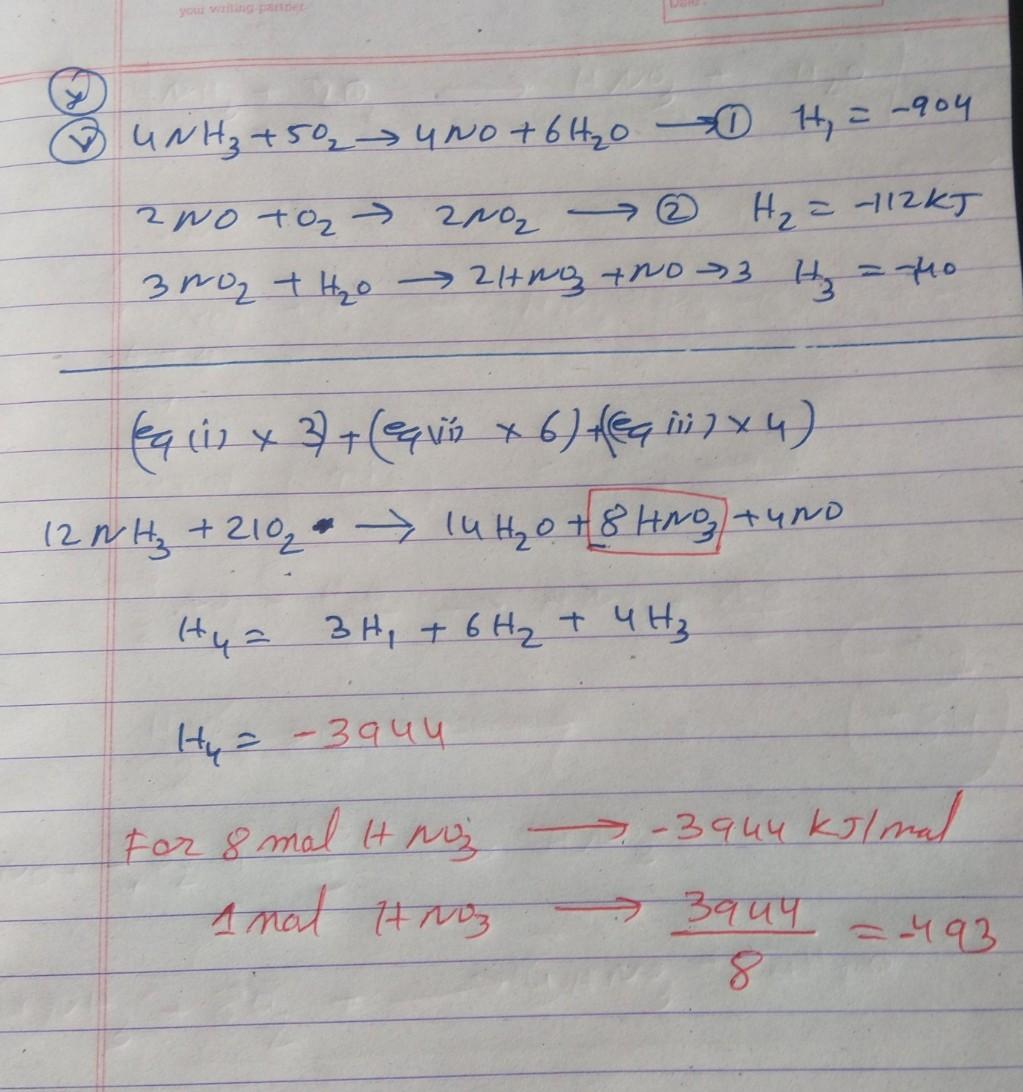 your writing partner
Date:
4NH₃ + 5O₂ → 4NO + 6H₂O → ① H₁ = -904
2NO + O₂ → 2NO₂ → ② H₂ = -112KJ
3NO₂ + H₂O → 2HNO₃ + NO → 3 H₃ =
(eq (i) x 3) + (eq (ii) x 6) + (eq iii) x 4)
12NH₃ + 21O₂ → 14H₂O + 8HNO₃ + 4NO
H₄ = 3H₁ + 6H₂ + 4H₃
H₄ = -3944
For 8 mol HNO₃ → -3944 KJ/mol
1 mol HNO₃ → 3944/8 = -493